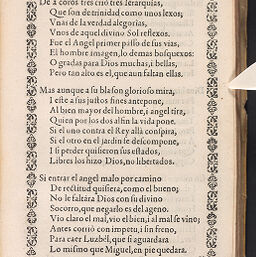 De a coros tres crió tres Ierarquias,
Que son de trinidad como unos lexos;
Vnas de la verdad alegorias,
Vnos de aquel divino Sol reflexos.
Fue el Angel primer passo de sus vias,
El hombre imagen, lo demas bosquexos:
O gradas para Dios muchas, i bellas,
Pero tan alto es el, que aun faltan ellas.
Mas aunque a su blason glorioso mira,
I este a sus justos fines antepone,
Al bien mayor del hombre, i angel tira,
Quien por los dos al fin la vida pone.
Si el uno contra el Rey allà conspira,
Si el otro en el jardin se descompone,
I se perder quisieron sus estados,
Libres los hizo Dios, no libertados.
Si entrar el angel malo por camino
De rectitud quisiera, como el bueno;
No le faltàra Dios con su divino
Socorro, que negarlo es del ageno.
Vio claro el mal, vio el bien, i al mal se vino;
Antes corriò con impetu, i sin freno,
Para caer Luzbèl, que si aguardara
Lo mismo que Miguel, en pie quedara.